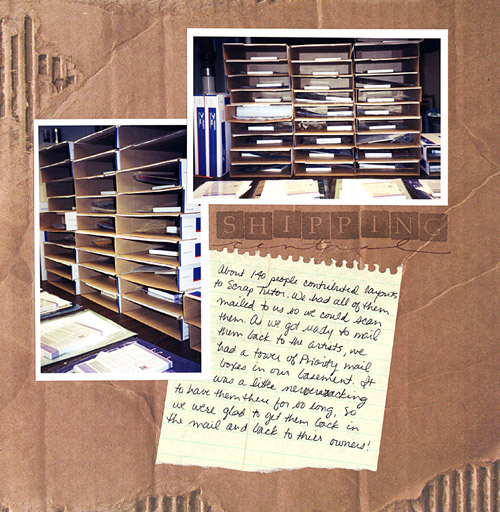 SHIPPING
central
About 140 people contributed layouts
to Scrap Tutor. We had all of them
mailed to us so we could scan
them. As we got ready to mail
them back to the artists, we
had a tower of Priority mail
boxes in our basement. It
was a little nervewracking
to have them there for so long, so
we were glad to get them back in
the mail and back to their owners!